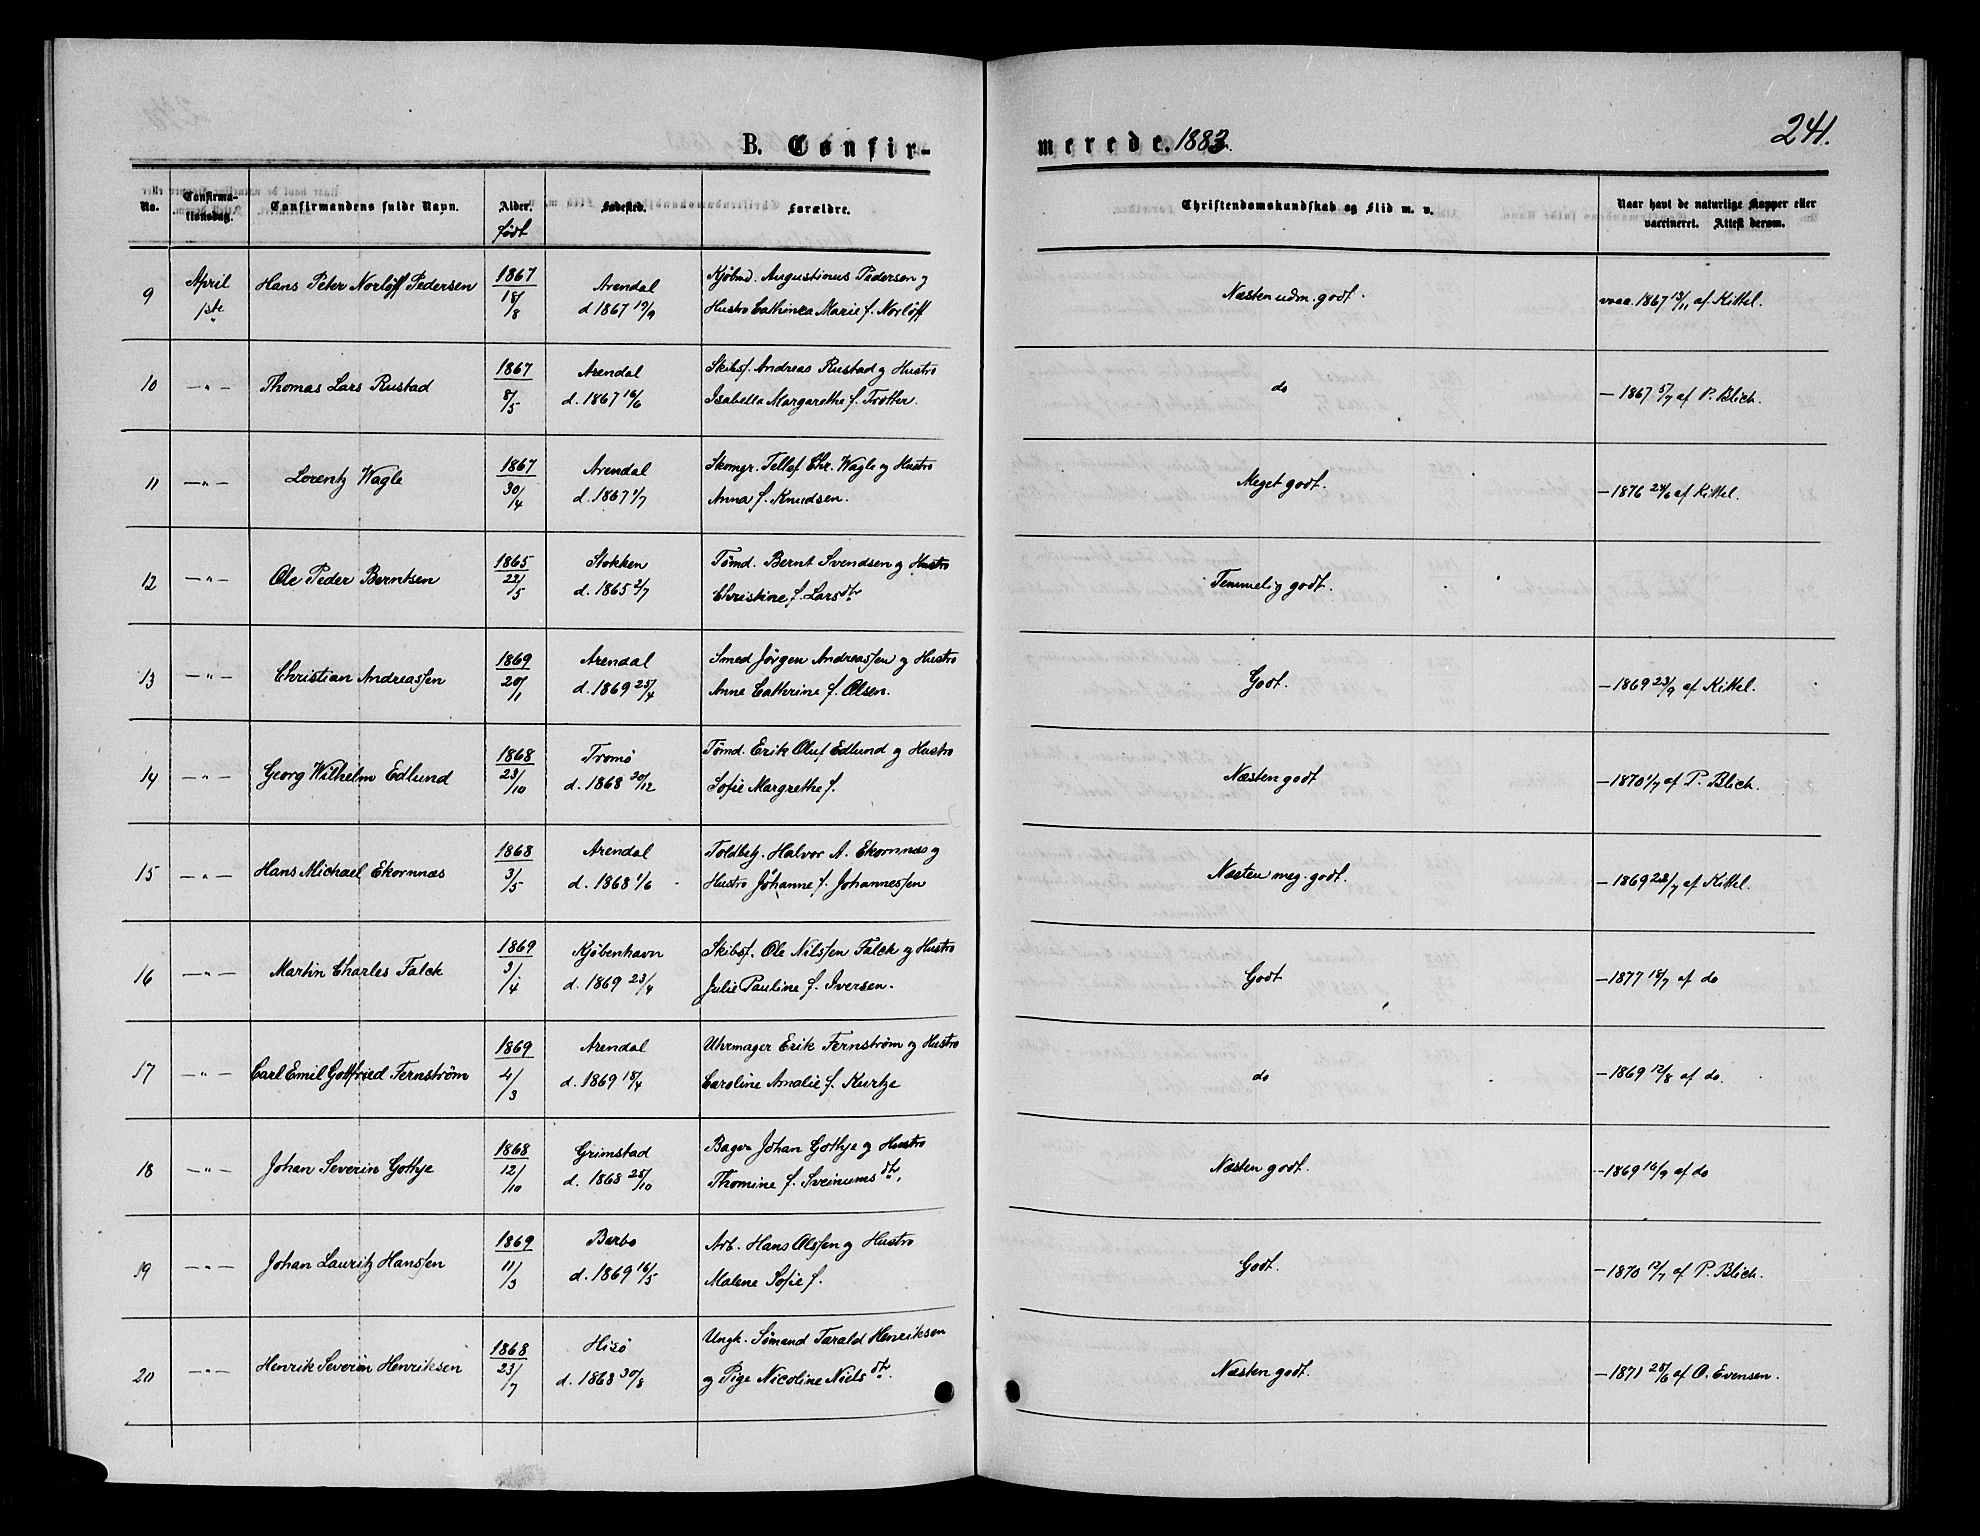 241.
B. Confirmerede. 1883.
No. Confirmationsdag. Confirmandens fulde Navn. Alder. født Fødested. Forældre. Christendomskundskab og Flid m. v. Naar havt de naturlige Kopper eller vaccineret. Attest derom.
9 April 1ste Hans Peter Norløff Pedersen 1867 18/8 Arendal Kjøbmd. Augustinus Pedersen og Næsten udm. godt. vacc. 1867 13/11 af Kittel.
d. 1867 19/9 Hustro Cathinca Marie f. Norløff
10 —"— Thomas Lars Rustad 1867 8/5 Arendal Skibsf. Andreas Rustad og Hustro do — 1867 5/7 af P. Blich.
d. 1867 16/6 Isabella Margarethe f. Trotter.
11 —"— Lorentz Wagle 1867 30/4 Arendal Skomgr. Tellef Chr. Wagle og Hustro Meget godt. — 1876 24/6 af Kittel.
d. 1867 1/7 Anna f. Knudsen.
12 —"— Ole Peder Berntsen 1865 22/5 Stokken Tømd. Bernt Svendsen og Hustro Temmelig godt.
d. 1865 2/7 Christine f. Larsdtr
13 —"— Christian Andreassen 1869 20/1 Arendal Smed Jørgen Andreassen og Hustro Godt. — 1869 23/9 af Kittel.
d. 1869 25/4 Anne Cathrine f. Olsen.
14 —"— Georg Wilhelm Edlund 1868 23/10 Tromø Tømd. Erik Oluf Edlund og Hustro Næsten godt — 1870 1/7 af P. Blich.
d. 1868 30/12 Sofie Margrethe f.
15 —"— Hans Michael Ekornnæs 1868 3/5 Arendal Toldbetj. Halvor A. Ekornnæs og Næsten meg. godt. — 1869 28/7 af Kittel.
d. 1868 1/6 Hustro Johanne f. Johannessen
16 —"— Martin Charles Falck 1869 3/4 Kjøbenhavn Skibsf. Ole Nilssen Falck og Hustro Godt — 1877 18/7 af do
d. 1869 23/4 Julie Pauline f. Iversen.
17 —"— Carl Emil Gottfried Fernstrøm 1869 4/3 Arendal Uhrmager Erik Fernstrøm og Hustro do — 1869 12/8 af do.
d. 1869 18/4 Caroline Amalie f. Kurtze
18 —"— Johan Severin Gottje 1868 12/10 Grimstad Bager Johan Gottje og Hustro Næsten godt. — 1869 16/9 af do
d. 1868 25/10 Thomine f. Sveinumsdtr.
19 —"— Johan Lauritz Hanssen 1869 11/3 Barbo Arb. Hans Olssen og Hustro Godt. — 1870 12/7 af P. Blich.
d. 1869 16/5 Malene Sofie f.
20 —"— Henrik Severin Henriksen 1868 23/7 Hisø Ungk. Sømand Tarald Henriksen Næsten godt. — 1871 28/6 af O. Evensen.
d. 1868 30/8 og Pige Nicoline Nielsdtr.